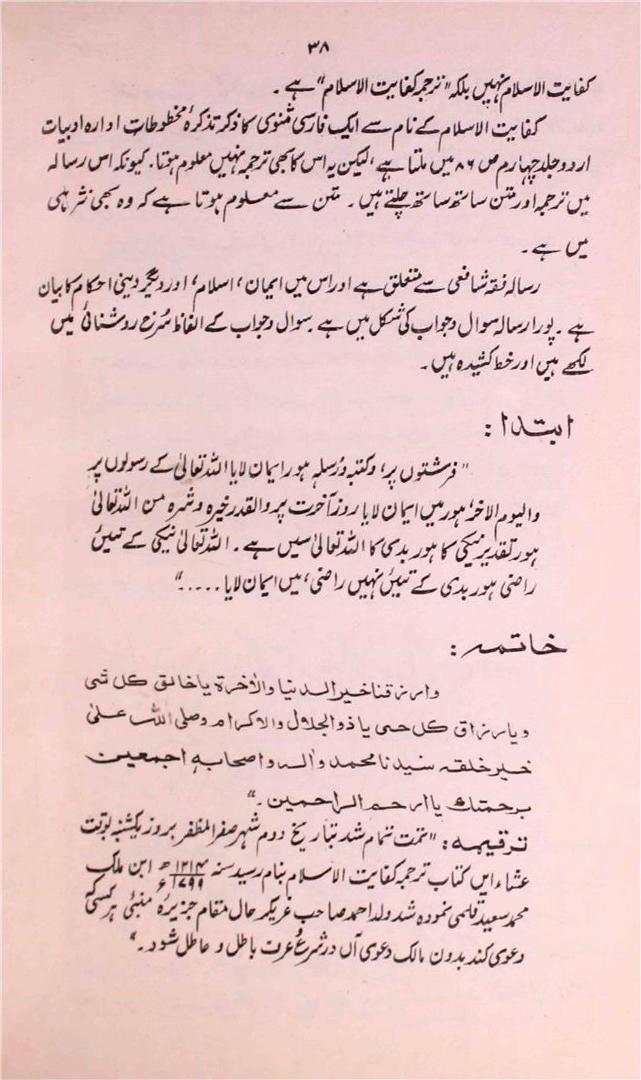 ۳۸
کفایت الاسلام نہیں بلکہ "ترجمہ کفایت الاسلام" ہے۔
کفایت الاسلام کے نام سے ایک فارسی مثنوی کا ذکر تذکرۂ مخطوطات ادارہ ادبیات
اردو جلد چہارم ص ۸۶ میں ملتا ہے، لیکن یہ اس کا بھی ترجمہ نہیں معلوم ہوتا۔ کیونکہ اس رسالہ
میں ترجمہ اور متن ساتھ ساتھ چلتے ہیں۔ متن سے معلوم ہوتا ہے کہ وہ بھی نثر ہی
میں ہے۔
رسالہ فقہ شافعی سے متعلق ہے اور اس میں ایمان، اسلام، اور دیگر دینی احکام کا بیان
ہے۔ پورا رسالہ سوال و جواب کی شکل میں ہے۔ سوال و جواب کے الفاظ سُرخ روشنائی میں
لکھے ہیں اور خط کشیدہ ہیں۔
ابتدا :
"فرشتوں پر، وکتبہ ورُسلہٖ ہور ایمان لایا اللہ تعالیٰ کے رسولوں پر
والیوم الآخر، ہور میں ایمان لایا روزِ آخرت پر والقدر خیرہ وشرہ من اللہ تعالیٰ
ہور تقدیر نیکی کا ہور بدی کا اللہ تعالیٰ سیں ہے۔ اللہ تعالیٰ نیکی کے تیئں
راضی ہور بدی کے تیئں نہیں راضی، میں ایمان لایا....."
خاتمہ :
وارزقنا خیر الدنیا والاخرۃ یا خالق کل شی
ویا رزاق کل حی یا ذوالجلال والاکرام وصلی اللہ علیٰ
خیر خلقہ سیدنا محمد والہ واصحابہ اجمعین
برحمتك یا ارحم الراحمین۔"
ترقیمہ : "تمت تمام شد بتاریخ دوم شہر صفر المظفر بروز یکشنبہ بوقت
عشاء ایں کتاب ترجمہ کفایت الاسلام بنام رسید سنہ ۱۲۱۴ھ / ۱۷۹۹ء ابن ملک
محمد سعید قلمی نمودہ شد ولد احمد صاحب حال مقام جزیرہ منبئی ہر کسی کہ
دعویٰ کند بدون مالک دعویٰ آں در شرع عرف باطل و عاطل شود۔"